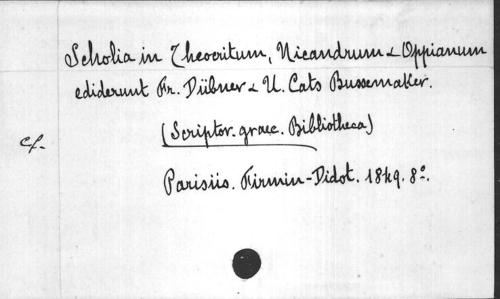 Scholia in Theocritum, Nicandrum & Oppianum
ediderunt Fr. Dübner & U. Cats Bussemaker.
(Scriptor. graec. Bibliotheca)
cf.
Parisiis. Firmin-Didot. 1849. 8°.